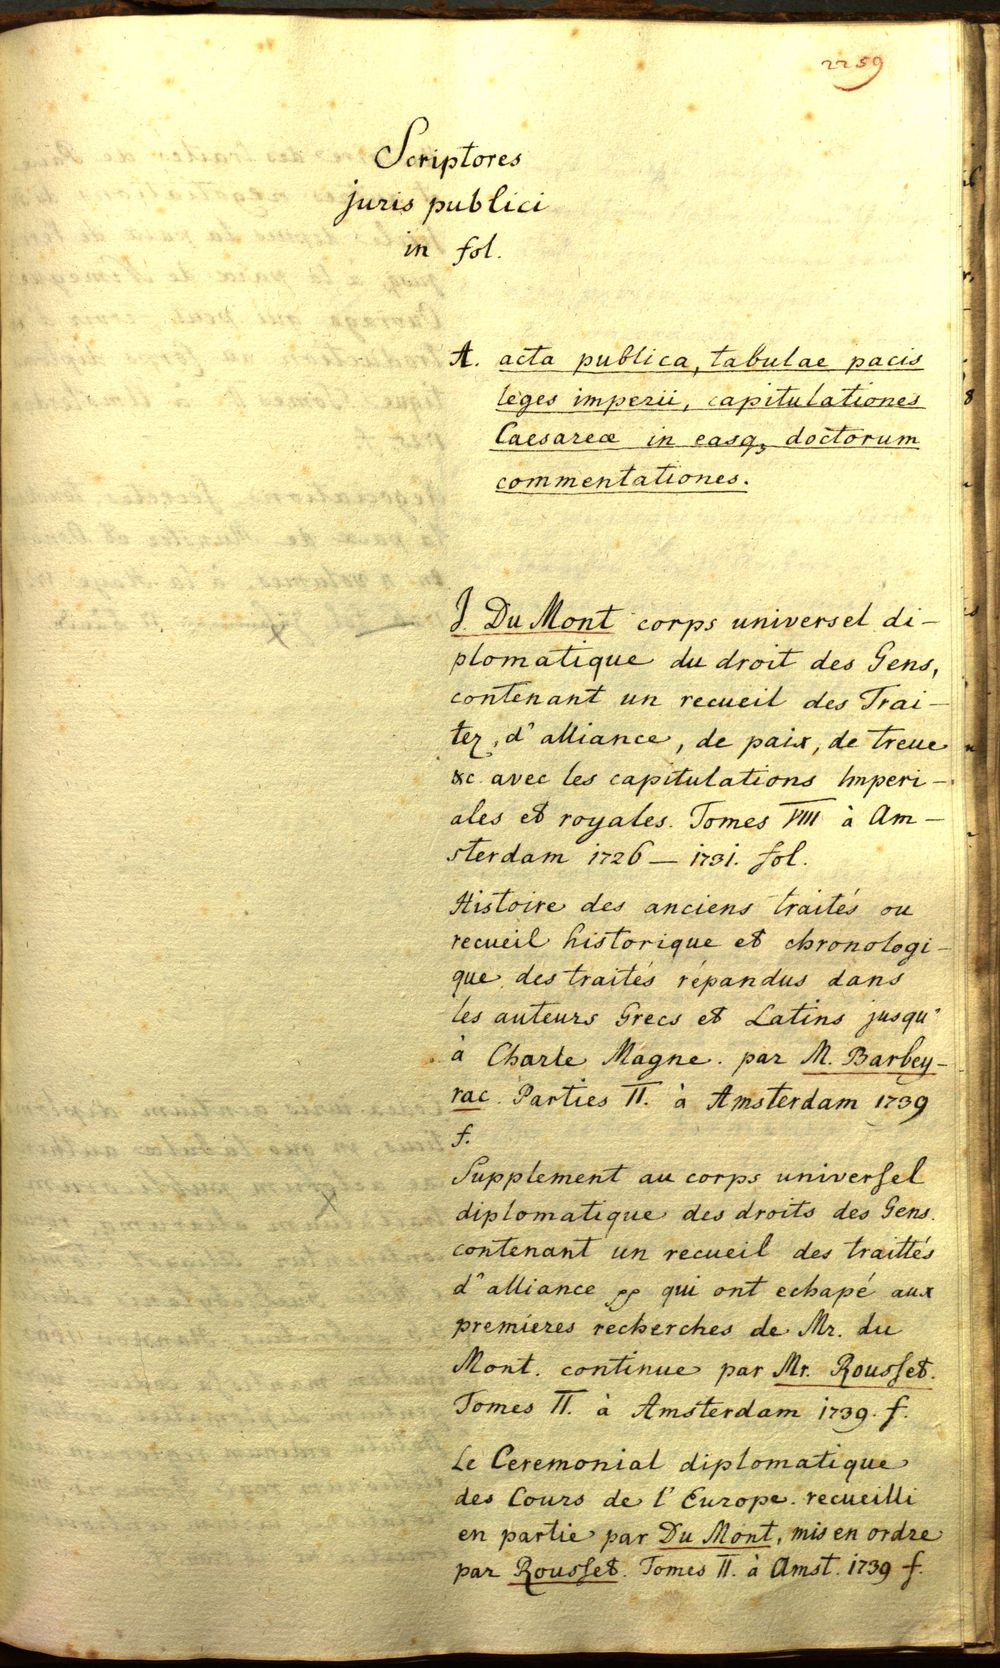 2259
Scriptores
juris publici
in fol.
A. acta publica, tabulae pacis
leges imperii, capitulationes
Caesareæ in easq, doctorum
commentationes.
J. Du Mont corps universel di-
plomatique du droit des Gens,
contenant un recueil des Trai-
tez, d'alliance, de paix, de treue
&c avec les capitulations Imperi-
ales et royales. Tomes VIII à Am-
sterdam 1726 — 1731. fol.
Histoire des anciens traités ou
recueil historique et chronologi-
que des traités répandus dans
les auteurs Grecs et Latins jusqu'
à Charle Magne. par M. Barbey-
rac. Parties II. à Amsterdam 1739
f.
Supplement au corps universel
diplomatique des droits des Gens.
contenant un recueil des traittés
d'alliance pp qui ont echapé aux
premieres recherches de Mr. du
Mont. continue par Mr. Rousset.
Tomes II. à Amsterdam 1739. f.
Le Ceremonial diplomatique
des Cours de l'Europe. recueilli
en partie par Du Mont, mis en ordre
par Rousset. Tomes II. à Amst. 1739 f.